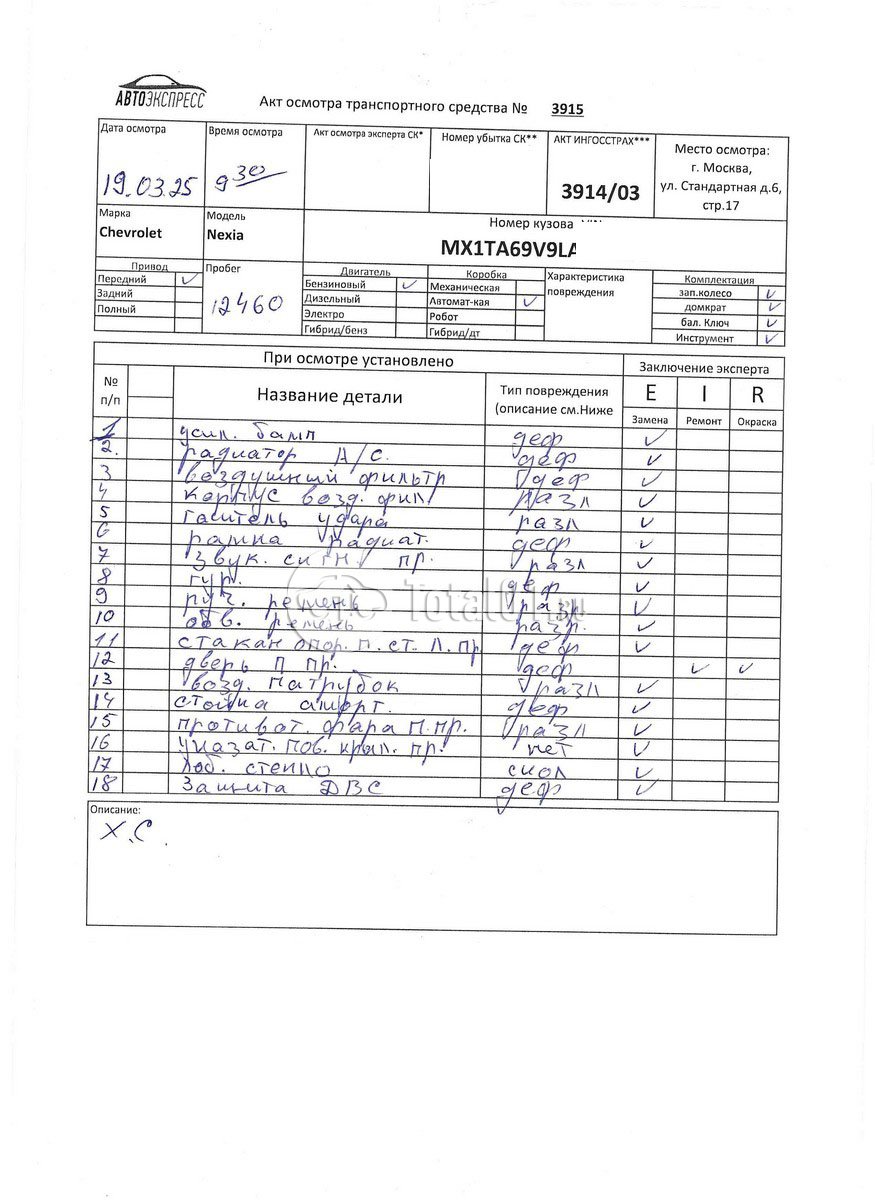 АВТОЭКСПРЕСС
Акт осмотра транспортного средства № 3915
Дата осмотра
Время осмотра
Акт осмотра эксперта СК*
Номер убытка СК**
АКТ ИНГОССТРАХ***
Место осмотра:
г. Москва,
ул. Стандартная д.6,
стр.17
19.03.25
9 30
3914/03
Марка
Chevrolet
Модель
Nexia
Номер кузова
MX1TA69V9LA
Привод
Передний ✓
Задний
Полный
Пробег
12460
Двигатель
Бензиновый ✓
Дизельный
Электро
Гибрид/бенз
Коробка
Механическая
Автомат-кая ✓
Робот
Гибрид/дт
Характеристика
повреждения
Комплектация
зап.колесо ✓
домкрат ✓
бал. Ключ ✓
Инструмент ✓
При осмотре установлено
Заключение эксперта
№
п/п
Название детали
Тип повреждения
(описание см.Ниже
E I R
Замена Ремонт Окраска
1 усил. бамп деф ✓
2. радиатор А/С. деф ✓
3 воздушный фильтр деф ✓
4 корпус возд. фил разл ✓
5 гаситель удара разл ✓
6 рамка радиат. деф ✓
7 звук. сигн. пр. разл ✓
8 гур. деф ✓
9 руч. ремень разр ✓
10 обв. ремень разр. ✓
11 стакан опор. п. ст. Л. пр деф ✓
12 дверь П пр. деф ✓ ✓
13 возд. патрубок разл ✓
14 стойка аморт. деф ✓
15 противот. фара П.пр. разл ✓
16 указат. пов. крыл. пр. нет ✓
17 лоб. стекло скол ✓
18 Защита ДВС деф ✓
TotalCar.ru
Описание:
Х.С